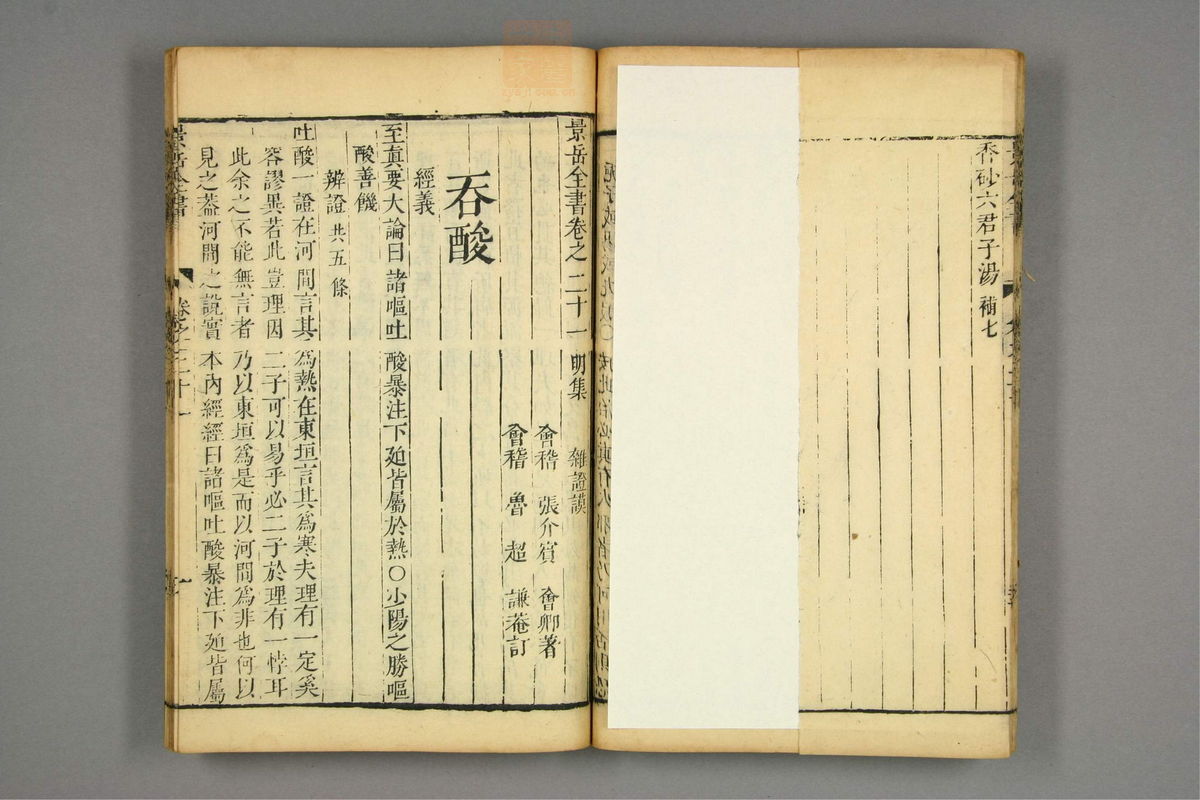 香砂六君子湯 補七
景岳全書卷之二十一 明集 雜證謨
會稽 張介賓 會卿著
會稽 魯超 謙菴訂
吞酸
經義
至真要大論曰諸嘔吐酸暴注下廹皆屬於熱○少陽之勝嘔
酸善饑
辨證 共五條
吐酸一證在河間言其為熱在東垣言其為寒夫理有一定奚
容謬異若此豈理因二子可以易乎必二子於理有一悖耳
此余之不能無言者乃以東垣為是而以河間為非也何以
見之葢河間之說實本內經經曰諸嘔吐酸暴注下廹皆屬
景岳全書 卷之二十一